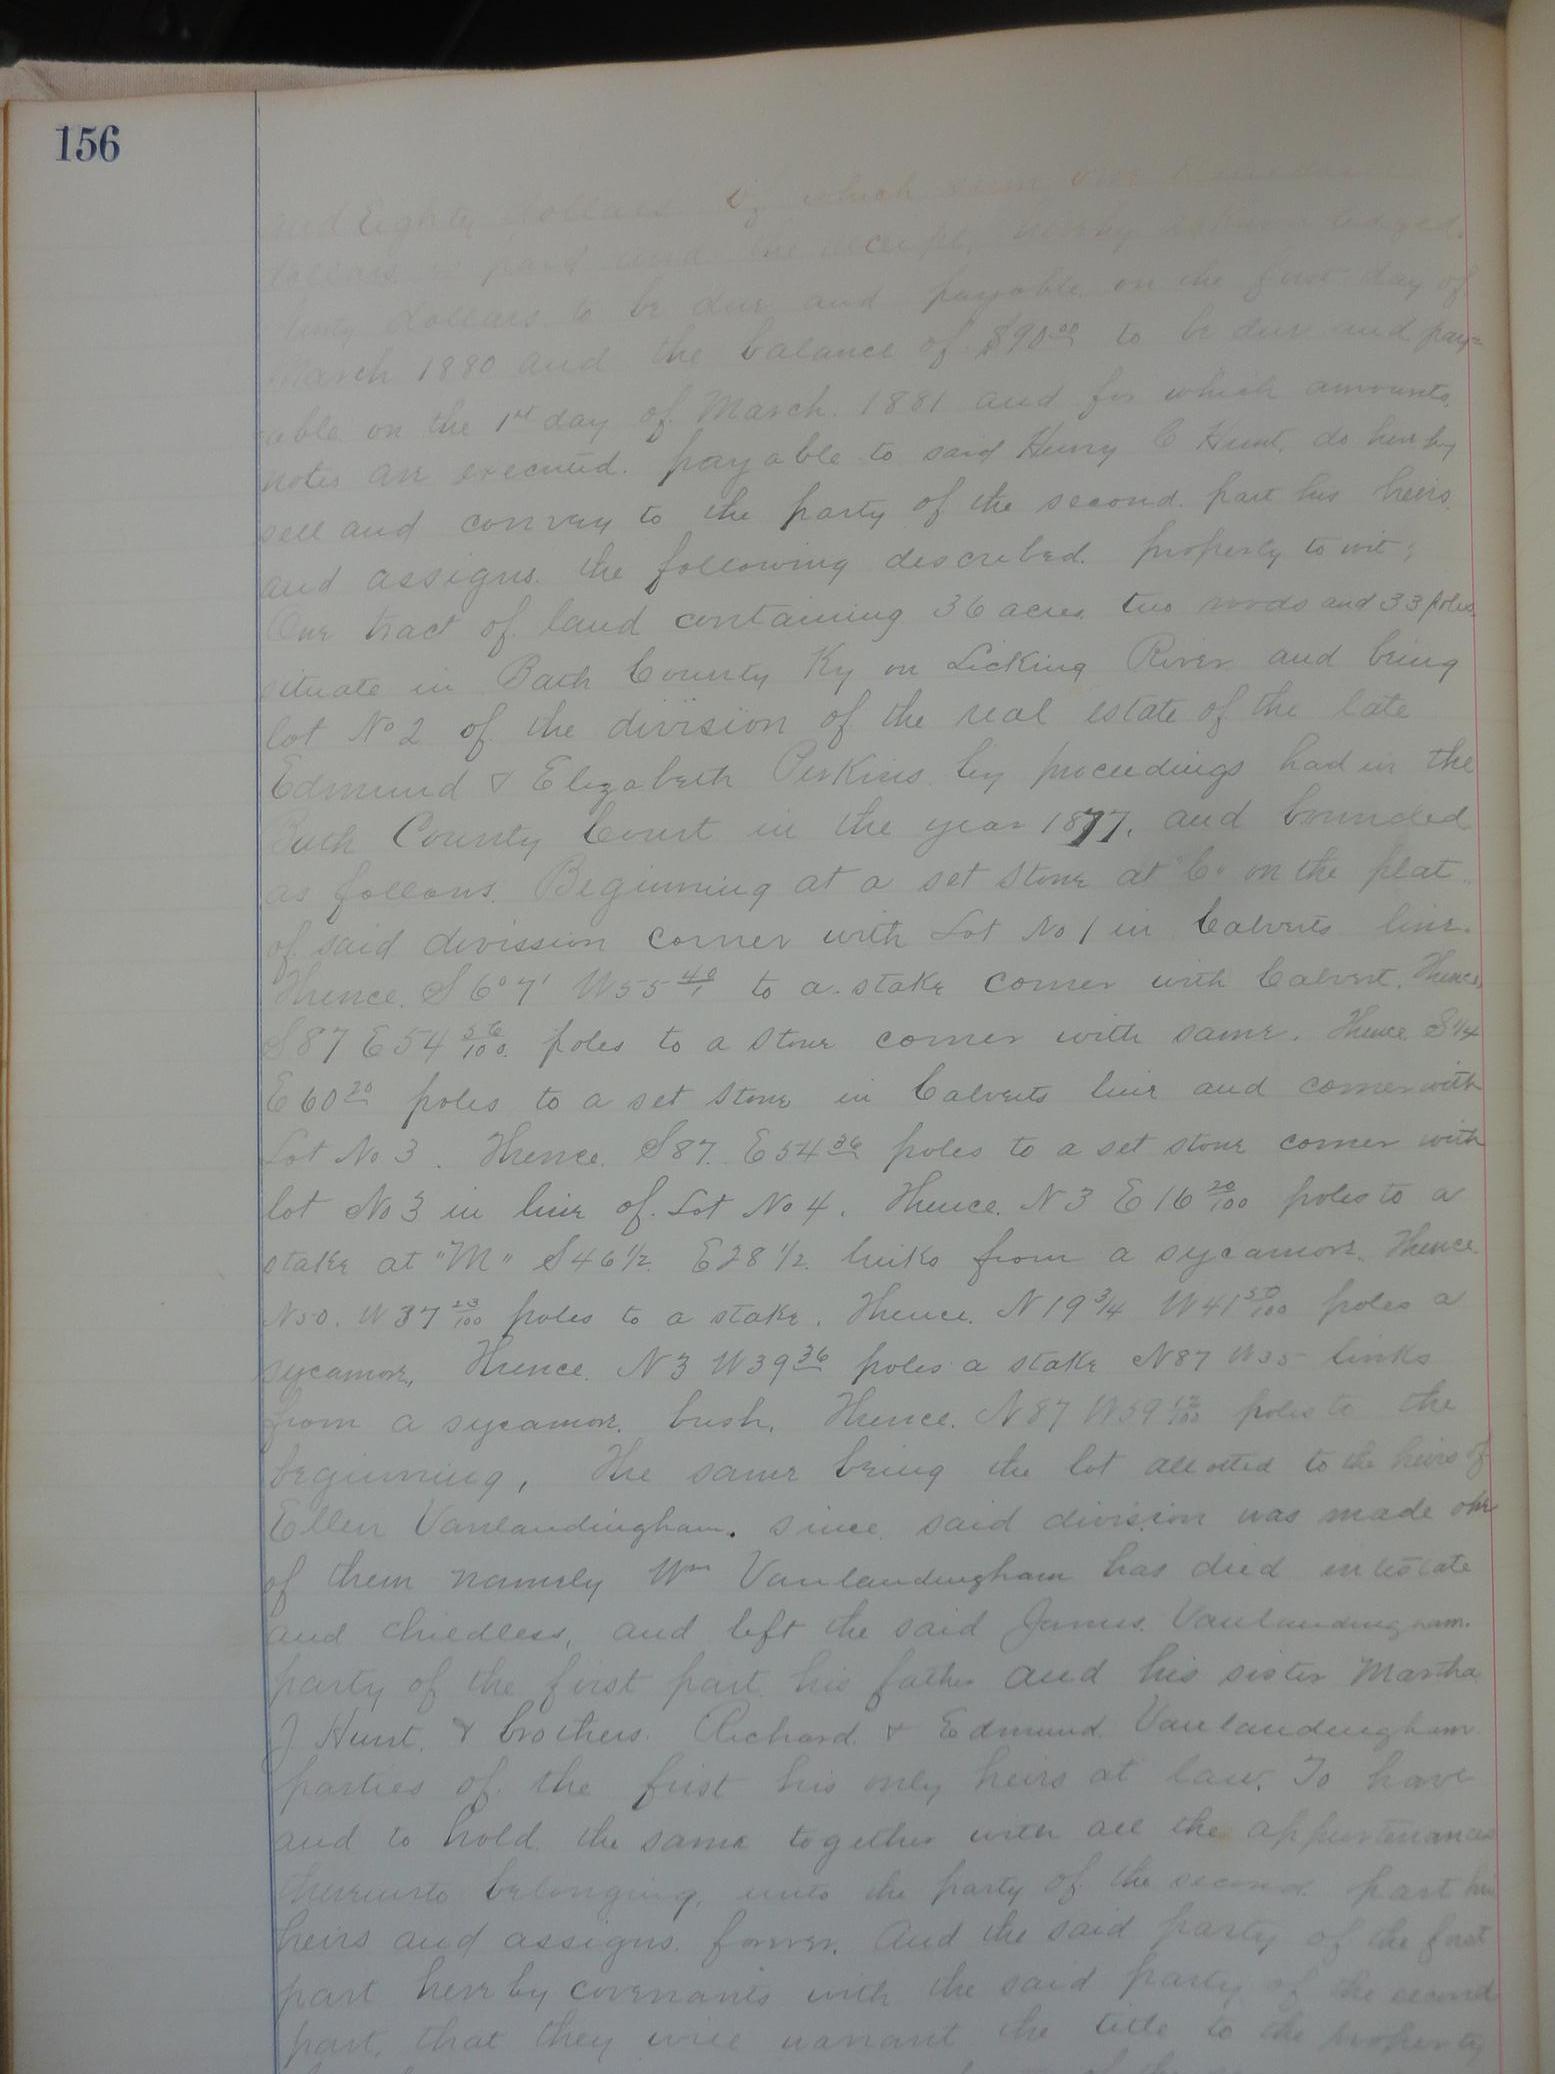 156
and Eighty dollars of which sum one hundred
dollars is paid and the receipt hereby acknowledged.
dollars to be due and payable on the first day of
March 1880 and the balance of $90.00 to be due and pay=
able on the 1st day of March. 1881 and for which amounts
notes are executed. payable to said Henry C Hunt, do hereby
sell and convey to the party of the second part his heirs
and assigns. the following described. property to wit;
One tract of land containing 36 acres two roods and 33 poles
situate in Bath County Ky on Licking River and being
lot No 2 of the division of the real estate of the late
Edmund & Elizabeth Perkins by proceedings had in the
Bath County Court in the year 1877. and bounded
as follows. Beginning at a set stone at "C" on the plat
of said divission corner with Lot No 1 in Calverts line.
Thence. S 6° 7' W 55 40/1 to a stake corner with Calvert. Thence
S 87 E 54 56/100 poles to a stone corner with same. Thence S 1/4
E 60 20 poles to a set stone in Calverts line and corner with
Lot No 3. Thence. S 87. E 54 36 poles to a set stone corner with
lot No 3 in line of Lot No 4. Thence. N 3 E 16 20/100 poles to a
stake at "M" S 46 1/2 E 28 1/2 links from a sycamore. Thence
N 50. W 37 23/100 poles to a stake. Thence. N 19 3/4 W 41 50/100 poles a
sycamore, Thence. N 3 W 39 36 poles a stake N 87 W 35 links
from a sycamore. bush. Thence. N 87 W 59 12/100 poles to the
beginning, The same being the lot allotted to the heirs of
Ellen Vanlandingham. since said division was made one
of them namely Wm Vanlandingham has died intestate
and childless, and left the said James Vanlandingham.
party of the first part his father and his sister Martha
J Hunt, & brothers. Richard & Edmund Vanlandingham
parties of the first his only heirs at law. To have
and to hold the same together with all the appurtenances
thereunto belonging, unto the party of the second part his
heirs and assigns forever. And the said party of the first
part hereby covenants with the said party of the second
part, that they will warrant the title to the property